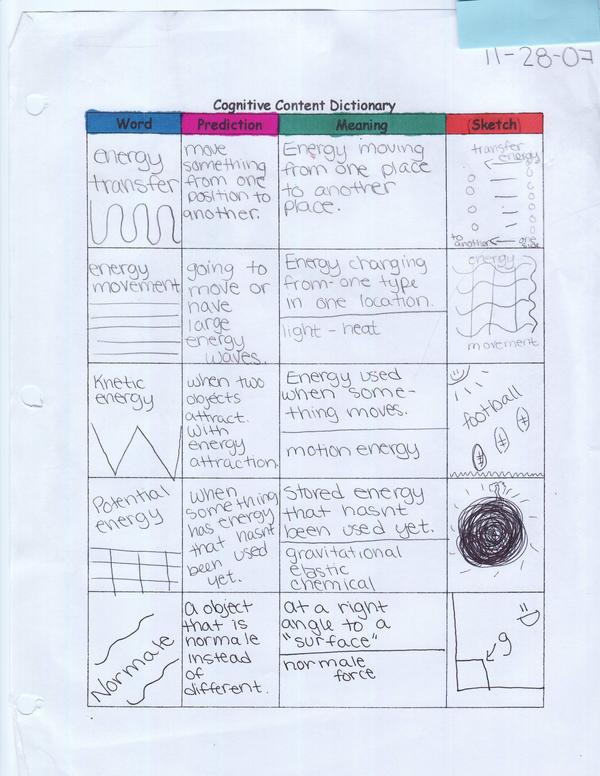 11-28-07
Cognitive Content Dictionary
Word
Prediction
Meaning
(Sketch)
energy
transfer
move
something
from one
position to
another.
Energy moving
from one place
to another
place.
transfer
energy
to
another
energy
movement
going to
move or
have
large
energy
waves.
Energy charging
from one type
in one location.
light - heat
energy
movement
Knetic
energy
when two
objects
attract.
with
energy
attraction
Energy used
when some-
thing moves.
motion energy
football
Potential
energy
When
something
has energy
that hasnt
been used
yet.
Stored energy
that hasnt
been used yet.
gravitational
elastic
chemical
Normale
a object
that is
normale
instead
of
different.
at a right
angle to a
"surface"
normale
force
g